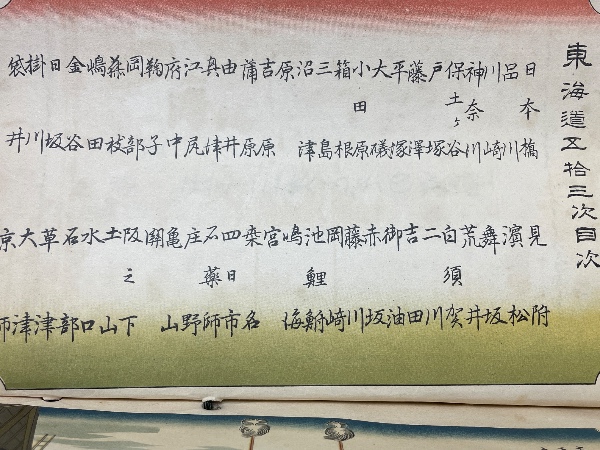 東海道五拾三次目次
日本橋
品川
川崎
神奈川
保土ヶ谷
戸塚
藤澤
平塚
大磯
小田原
箱根
三島
沼津
原
吉原
蒲原
由井
奥津
江尻
府中
鞠子
岡部
藤枝
嶋田
金谷
日坂
掛川
袋井
見附
濱松
舞坂
荒井
白須賀
二川
吉田
御油
赤坂
藤川
岡崎
池鯉鮒
鳴海
宮
桑名
四日市
石薬師
庄野
亀山
関
阪之下
土山
水口
石部
草津
大津
京師